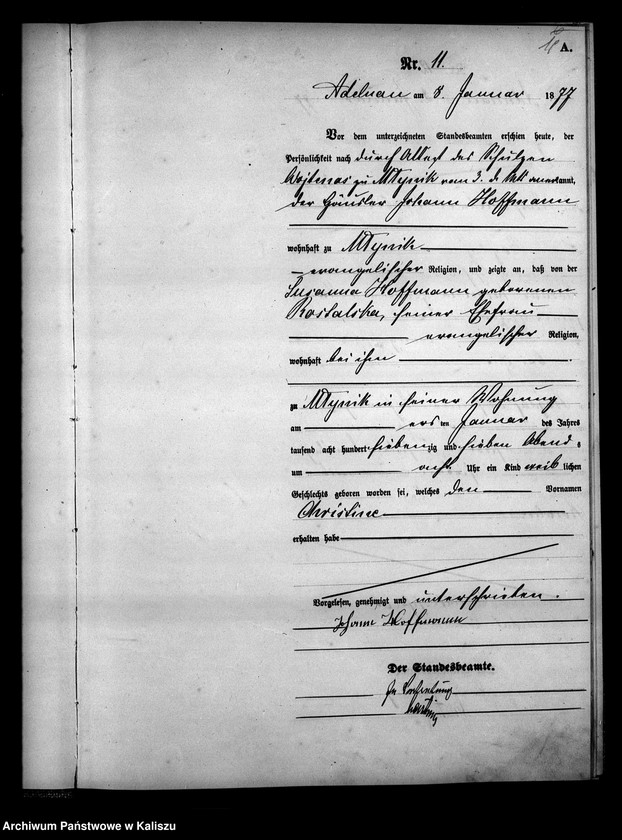 A.
Nr. 11.
Adelnau am 8. Januar 1877
Vor dem unterzeichneten Standesbeamten erschien heute, der
Persönlichkeit nach durch Attest des Schulzen
zu Mlynik vom 3. d. Mts anerkannt,
der Häusler Johann Hoffmann
wohnhaft zu Mlynik
evangelischer Religion, und zeigte an, daß von der
Susanna Hoffmann geborenen
Rostalska, seiner Ehefrau
evangelischer Religion,
wohnhaft bei ihm
zu Mlynik in seiner Wohnung
am ersten Januar des Jahres
tausend acht hundert siebenzig und sieben Abends
um acht Uhr ein Kind weiblichen
Geschlechts geboren worden sei, welches den Vornamen
Christine
erhalten habe
Vorgelesen, genehmigt und unterschrieben.
Johann Hoffmann
Der Standesbeamte.
In Vertretung
Archiwum Państwowe w Kaliszu